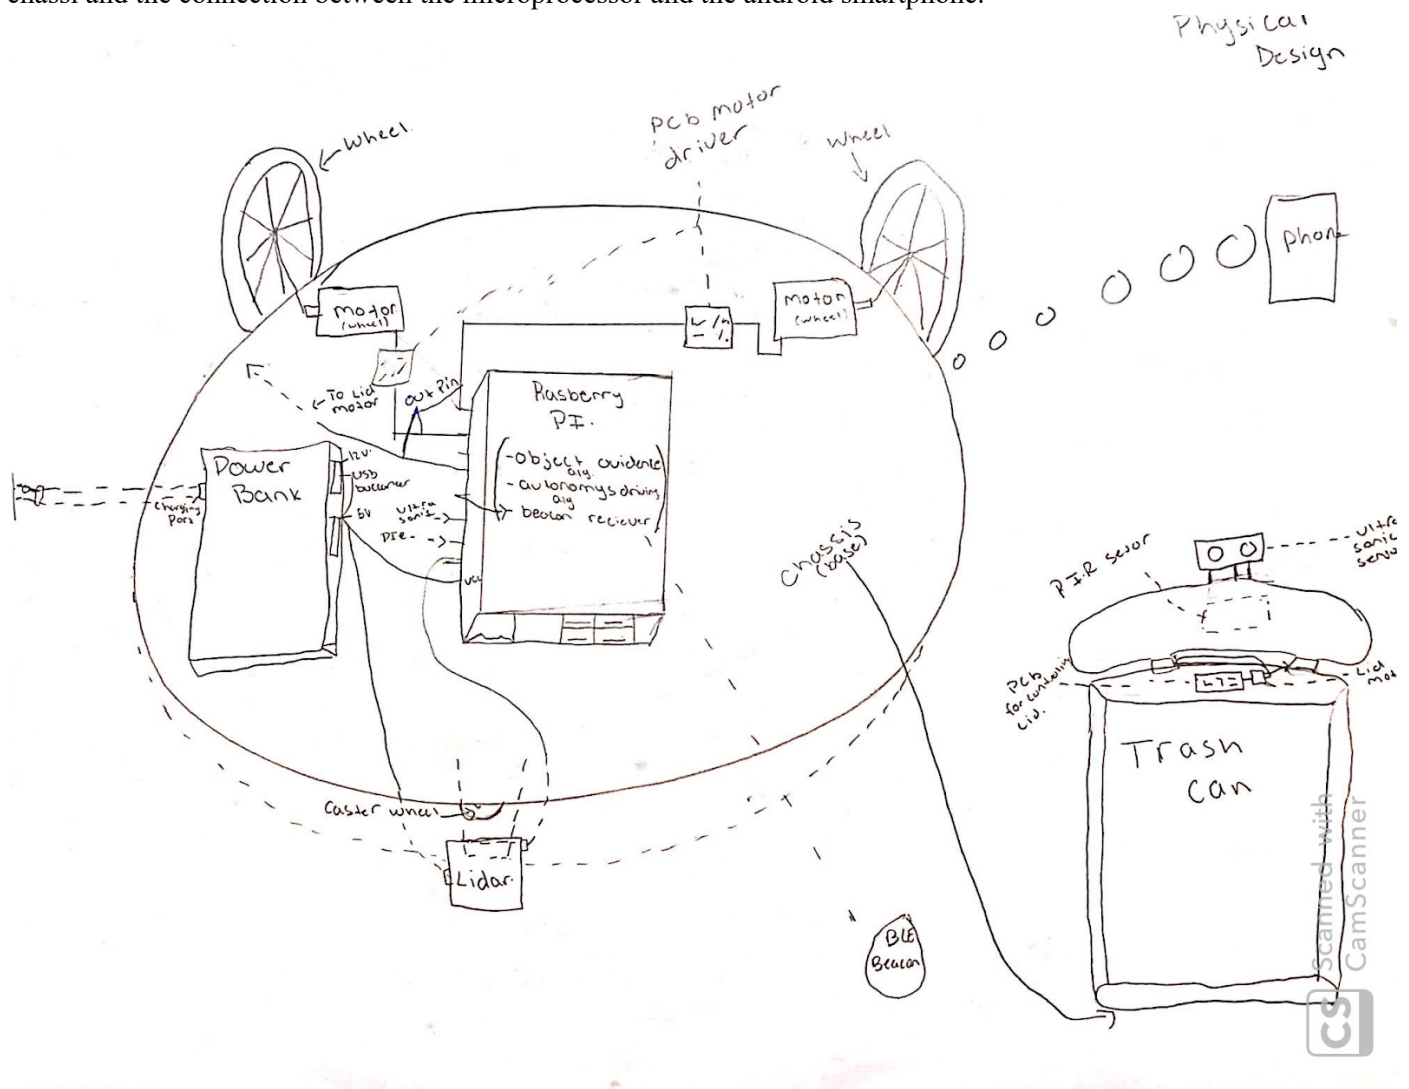 chassi and the connection between the microprocessor and the android smartphone.
Physical
Design
PCb motor
driver
Wheel
Wheel
Phon
Motor
(wheel)
Motor
(wheel)
To Lid
motor
out Pin
Rasberry
PI.
-object avidence
alg.
- autonomys driving
alg
- beacon reciever
Power
Bank
12V.
USB
5V
Charging
Port
ultra
sonic
VCC
Chassis
(base)
ultra
sonic
P.I.R sensor
PCb
for controlin
Lid.
Lid
mot
Trash
Can
Caster wheel
Lidar.
BLE
Beacon
Scanned with
CamScanner
CS